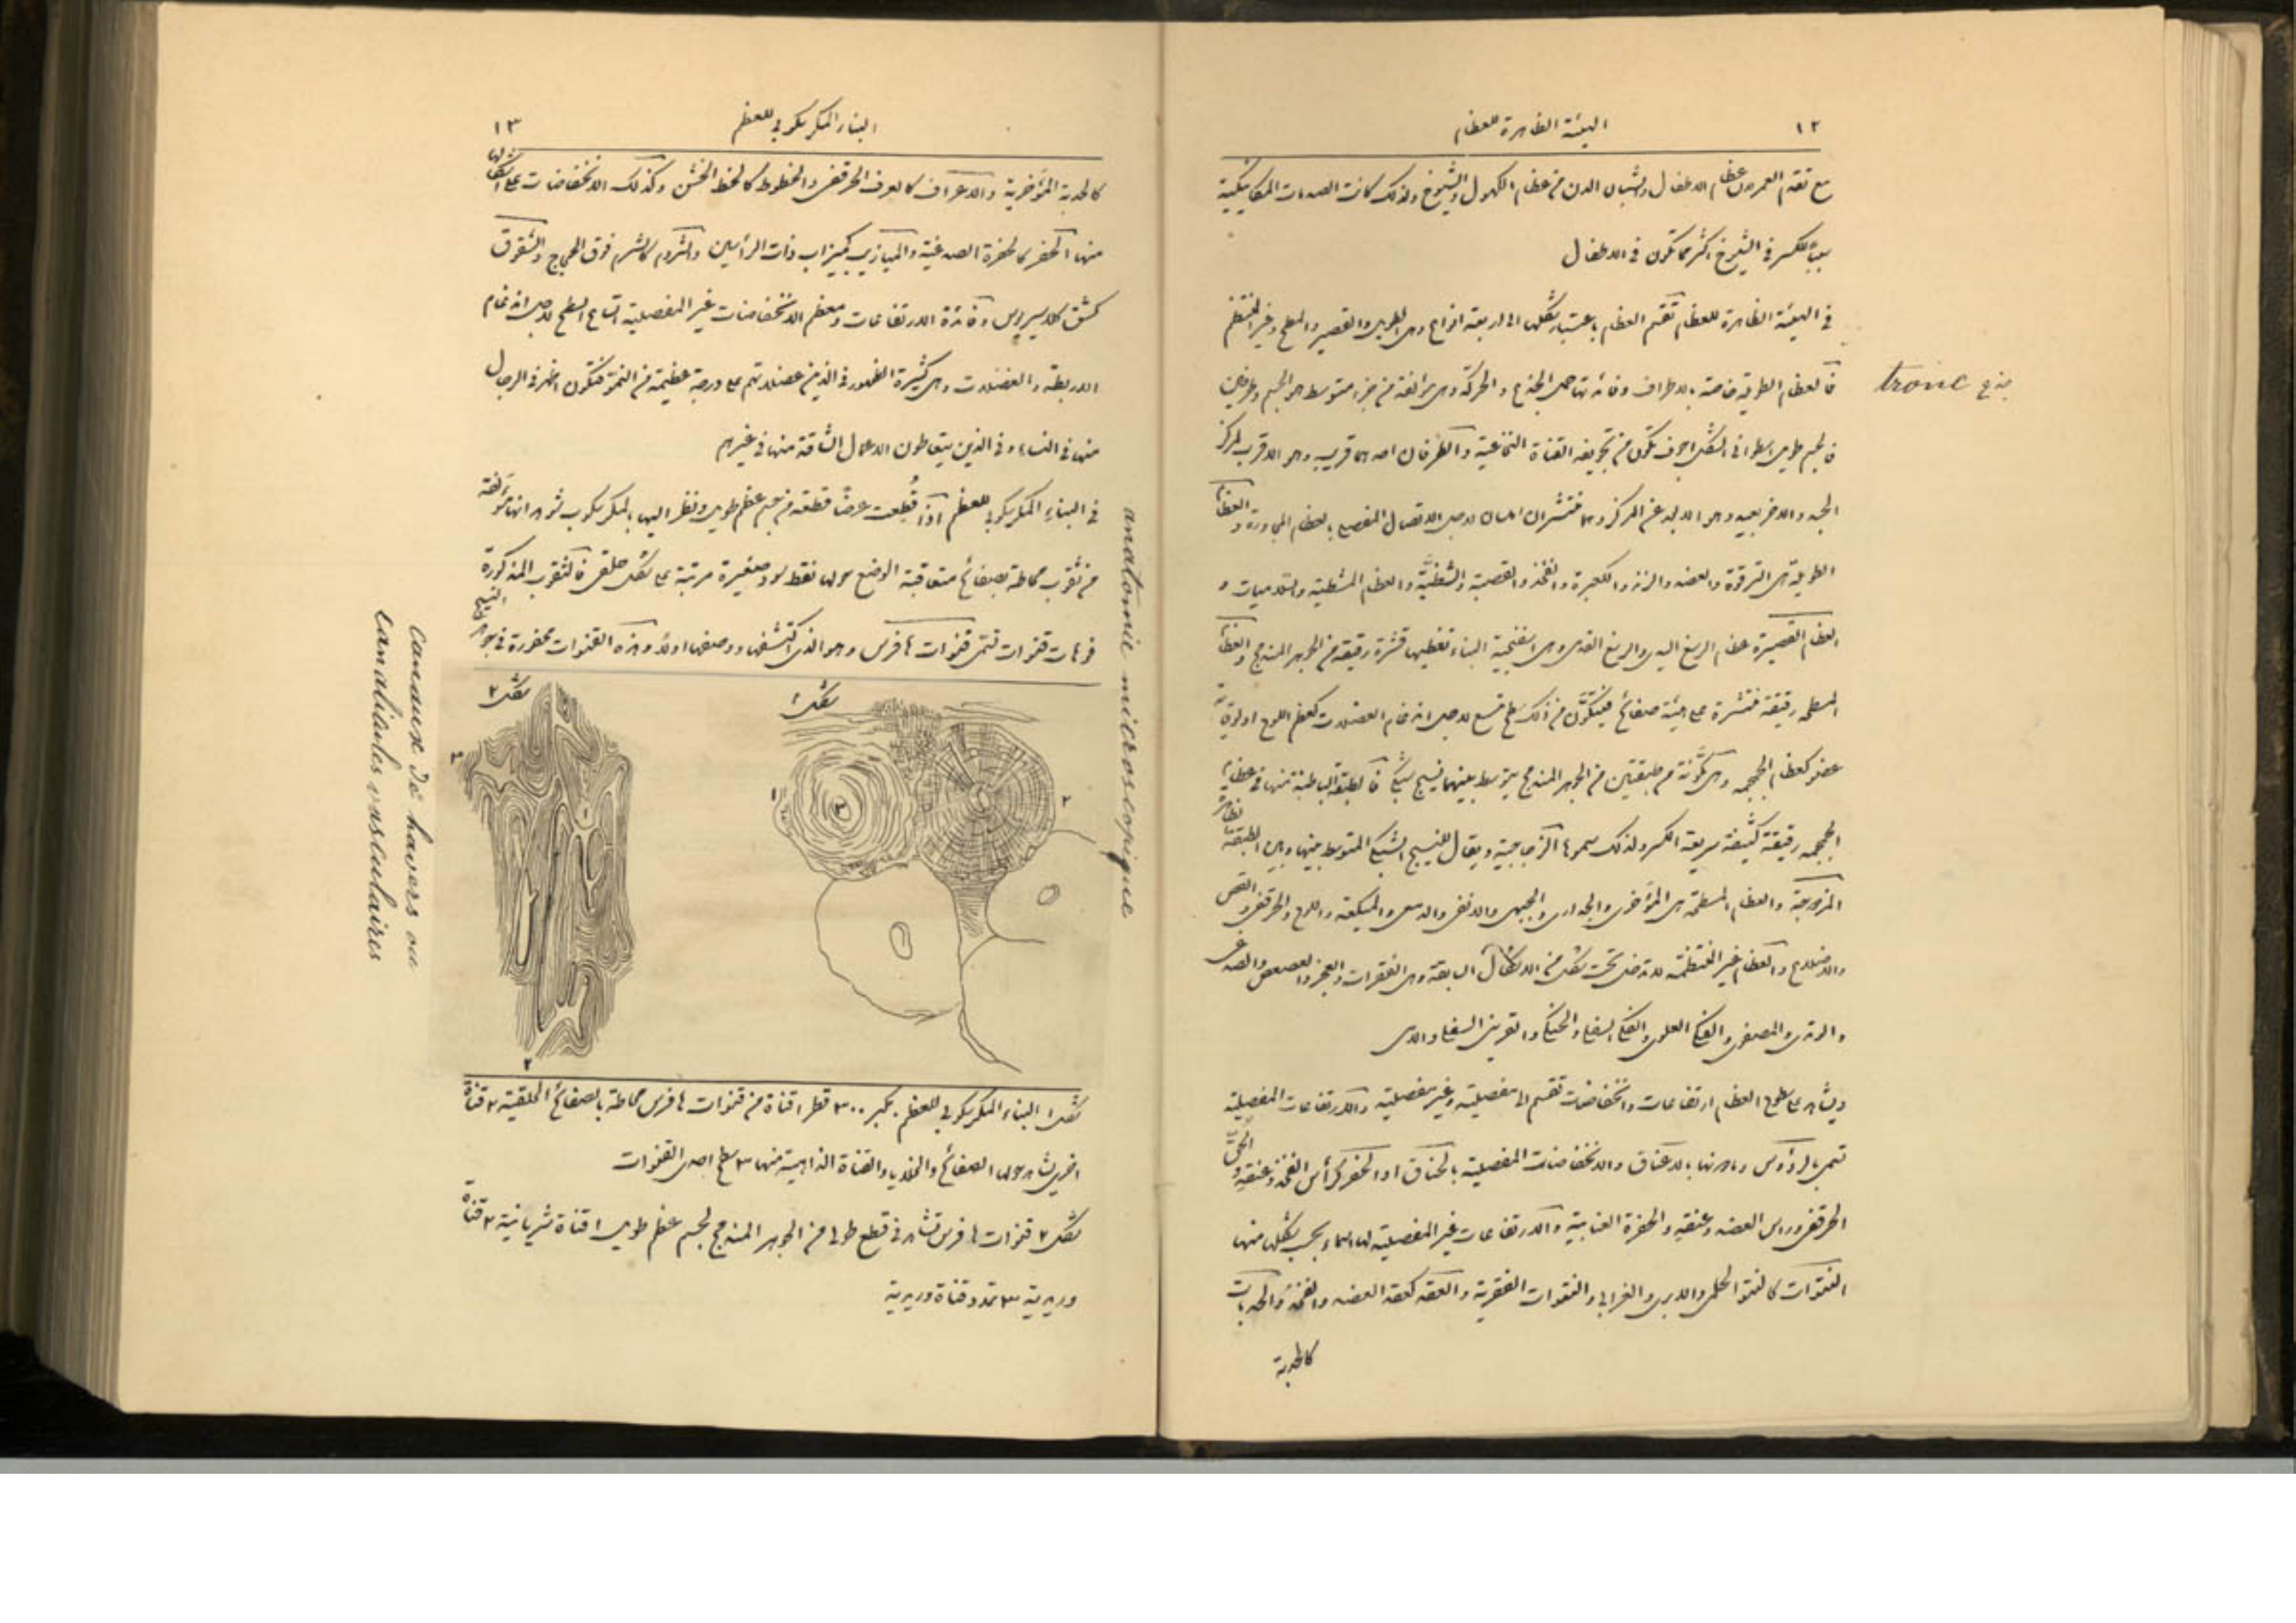 ١٢
الهيئة الظاهرة للعظام
مع تقدم العمر لان عظام الاطفال والشبان الدن من عظام الكهول والشيوخ ولذلك كانت الصدمات الميكانيكية
سبباً للكسر في الشيوخ اكثر مما تكون في الاطفال
في الهيئة الظاهرة للعظام تقسم العظام باعتبار شكلها الى اربعة انواع وهي الطويل والقصير والمسطح وغير المنتظم
فالعظام الطويلة خاصة بالاطراف وفائدتها حمل الجذع والحركة وهي مؤلفة من جزء متوسط هو الجسم وطرفين
فالجسم طويل اسطواني الشكل اجوف تتكون من تجويفه القناة النخاعية والطرفان احدهما قريب وهو الاقرب لمركز
الجسد والاخر بعيد وهو الابعد عن المركز وهما منتشران لاجل الاتصال المفصلي بالعظام المجاورة والعظام
الطويلة هي الترقوة والعضد والزند والكعبرة والفخذ والقصبة والشظية والعظام المشطية والسلاميات و
العظام القصيرة عظام الرسغ اليدي والرسغ القدمي وهي اسفنجية البناء تغطيها قشرة رقيقة من الجوهر المندمج والعظام
المسطحة رقيقة منتشرة على هيئة صفائح فيتكون من ذلك سطح متسع لاجل اندغام العضلات كعظم اللوح او لوقاية
عضو كعظام الجمجمة وهي مكونة من طبقتين من الجوهر المندمج يتوسط بينهما نسيج شبكي فالطبقة الباطنة منها في عظام
الجمجمة رقيقة كثيفة سريعة الكسر ولذلك سموها الزجاجية ويقال للنسيج الشبكي المتوسط بينها وبين الطبقة الظاهرة
المزدوجة والعظام المسطحة هي المؤخري والجداري والجبهي والانفي والدمعي والميكعة واللوح والحرقفي والقص
والاضلاع والعظام غير المنتظمة لا تدخل تحت شكل من الاشكال السابقة وهي الفقرات والعجز والعصعص والصدغي
والوتدي والمصفوي والفكي العلوي والفكي السفلي والحنكي والقريني السفلي واللامي
ويشاهد على سطوح العظام ارتفاعات وانخفاضات تقسم الى مفصلية وغير مفصلية والارتفاعات المفصلية
تسمى بالرؤوس وما دونها بالاعناق والانخفاضات المفصلية بالحقاق او الحفر كرأس الفخذ وعنقه والحق
الحرقفي وراس العضد وعنقه والحفرة العنابية والارتفاعات غير المفصلية لها اسماء بحسب شكلها منها
النتوات كالنتو الحلمي والابري والغرابي والنتوات الفقرية والعقد كعقد العضد والفخذ والحدبات
كالحدبة
جذع tronc
١٣
البناء المكرسكوبي للعظم
كالحدبة المؤخرية والاعراف كالعرف الحرقفي والخطوط كالخط الخشن وكذلك الانخفاضات على اشكالها
منها الحفر كالحفرة الصدغية والميازيب كميزاب ذات الرأسين والشروم كالشرم فوق الحجاج والشقوق
كشق كلاسيروس وفائدة الارتفاعات ومعظم الانخفاضات غير المفصلية اتساع السطح لاجل اندغام
الاربطة والعضلات وهي كثيرة الظهور في الذين عضلاتهم على درجة عظيمة من النمو فتكون اظهر في الرجال
منها في النساء وفي الذين يتعاطون الاعمال الشاقة منها في غيرهم
في البناء المكرسكوبي للعظم اذا قُطعت عرضاً قطعة من جسم عظم طويل ونظر اليها بالمكرسكوب شوهد انها مؤلفة
من ثقوب محاطة بصفائح متعاقبة الوضع حولها نقط سود صغيرة مرتبة على شكل حلقي فالثقوب المذكورة
فوهات قنوات تسمى قنوات هافرس وهو الذي اكتشفها ووصفها اولاً وهذه القنوات محفورة في جوهر النسيج
شكل ١
١
٢
٣
شكل ٢
١
٢
٣
شكل ١ البناء المكرسكوبي للعظم بكبر ٣٠٠ قطر ١ قناة من قنوات هافرس محاطة بالصفائح الحلقية ٢ قناة
اخرى يشاهد حولها الصفائح والخلايا والقناة الذاهبة منها ٣ سطح احدى القنوات
شكل ٢ قنوات هافرس تشاهد في قطع طولي من الجوهر المندمج لجسم عظم طويل ١ قناة شريانية ٢ قناة
وريدية ٣ تمدد قناة وريدية
anatomie microscopique
canaux de havers ou
canalicules vasculaires